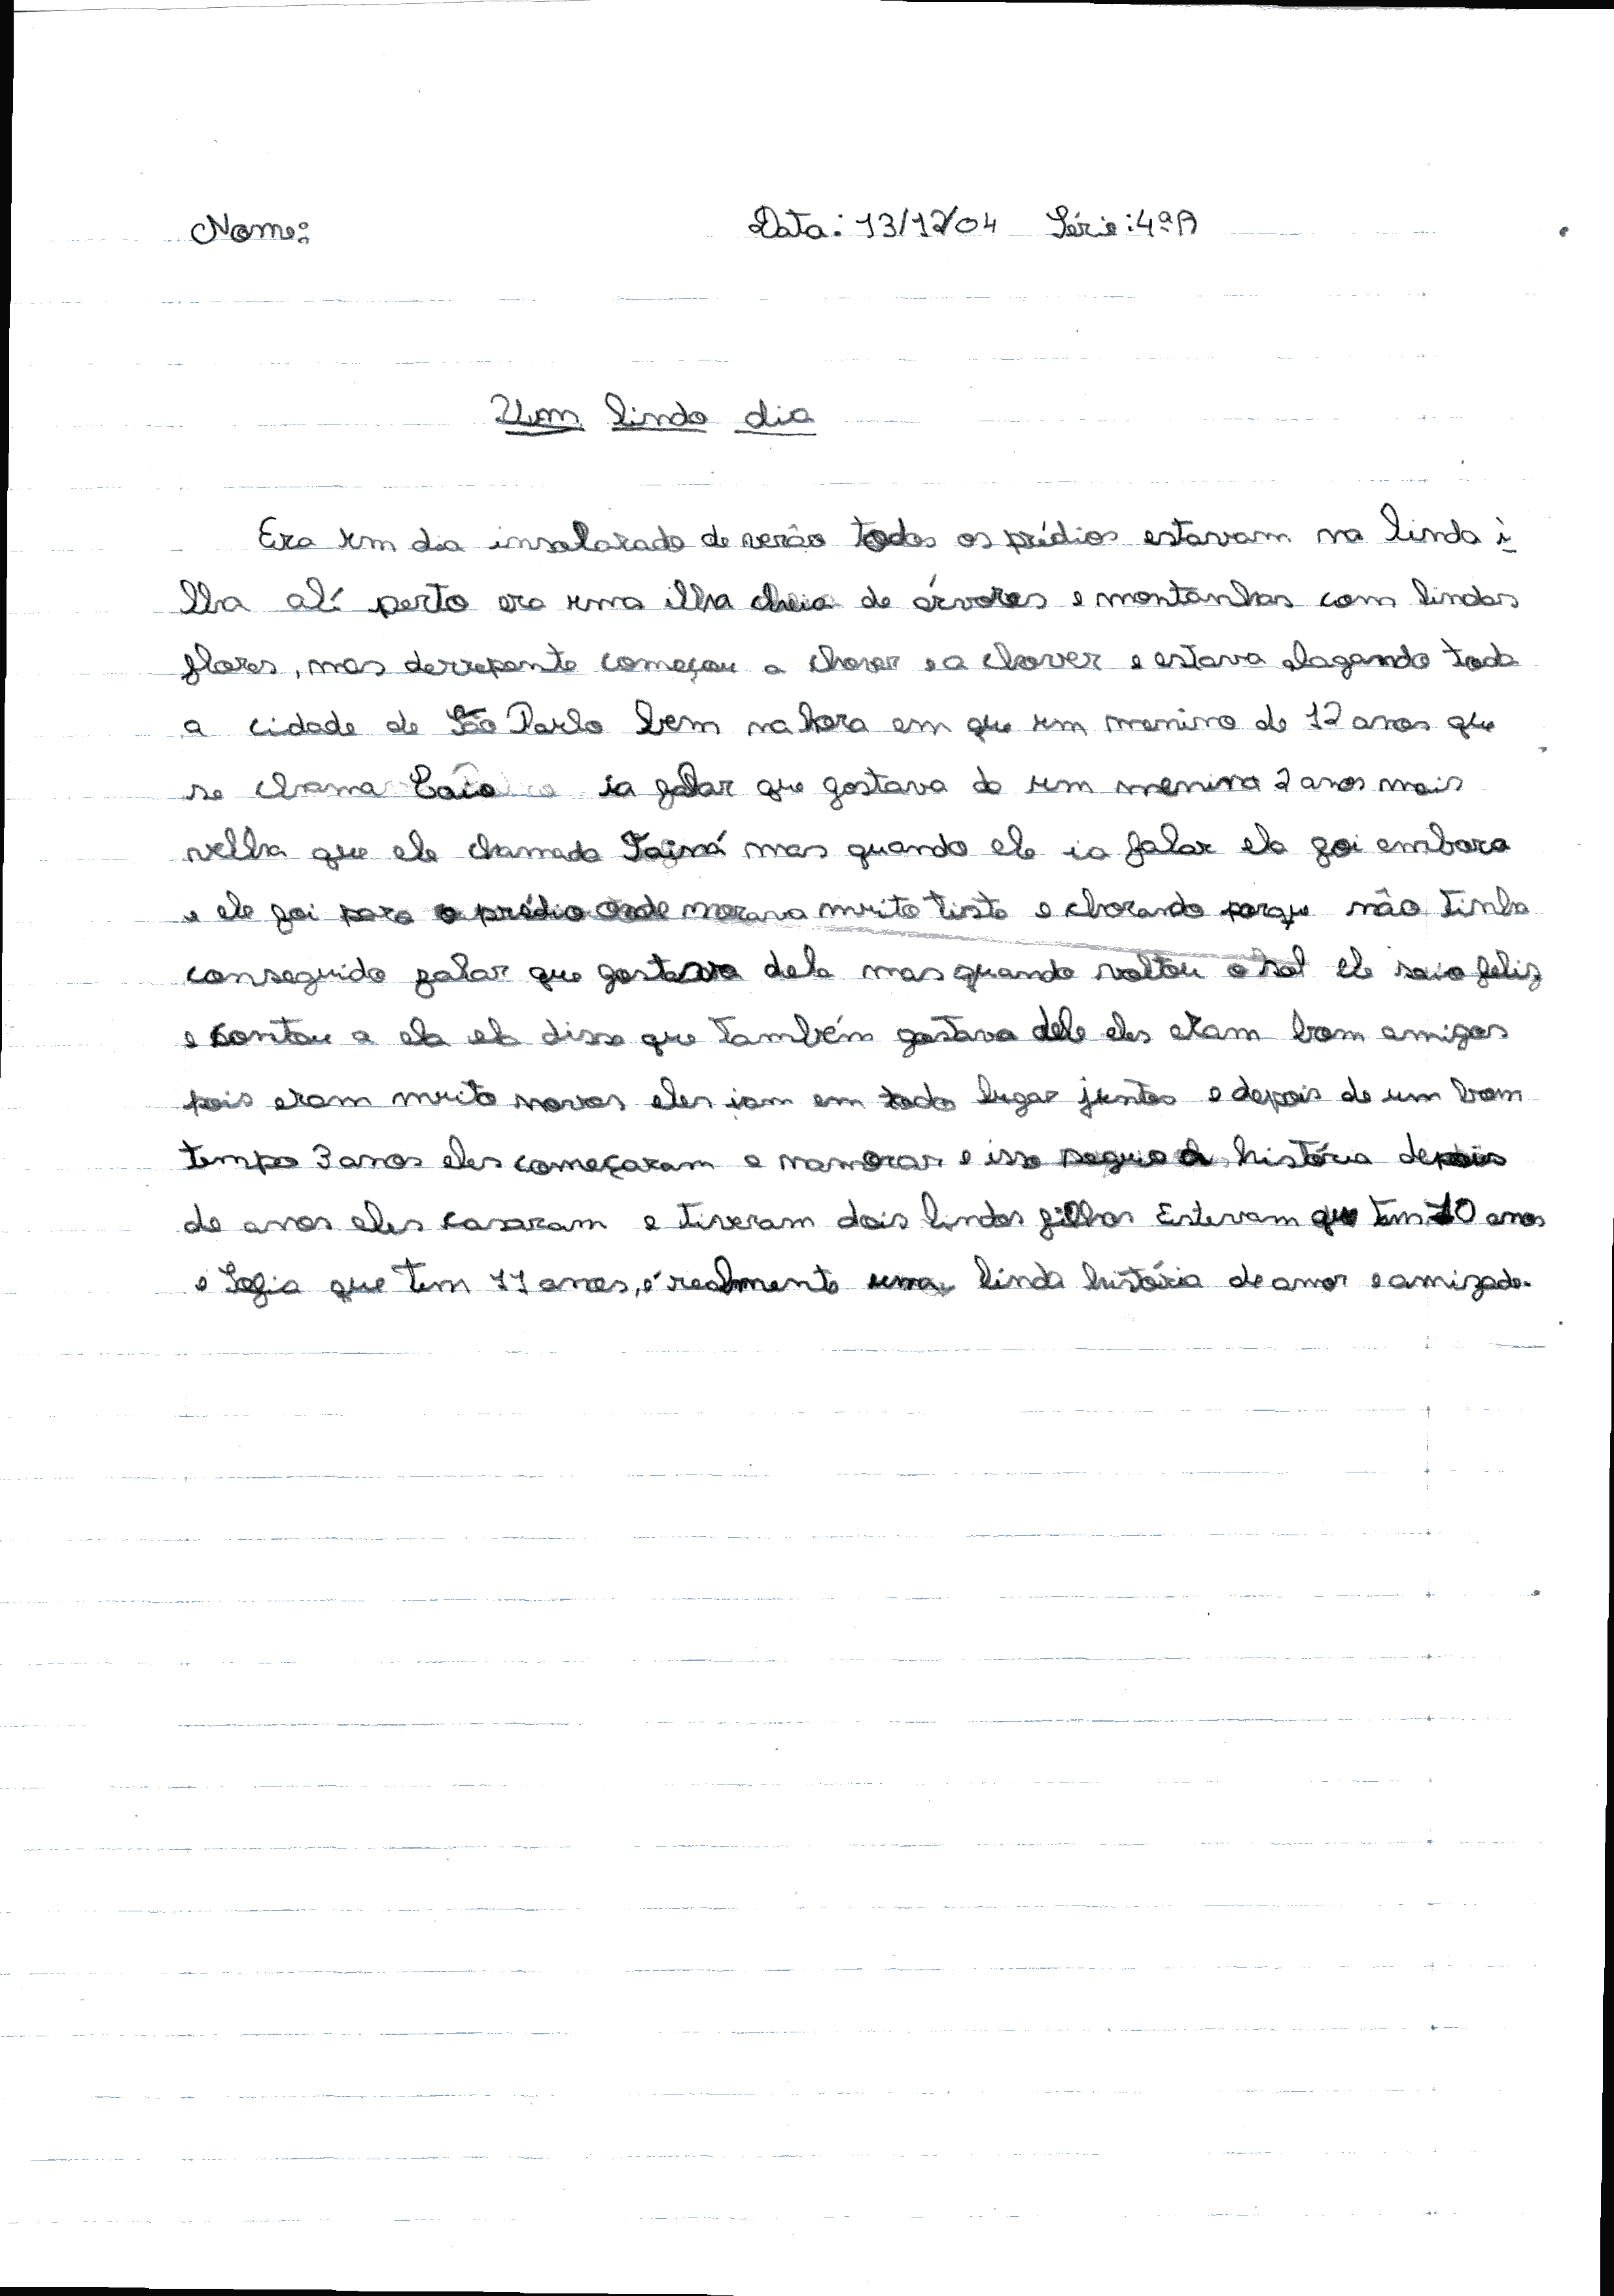 Nome: Data: 13/12/04 Série: 4ªA
Um lindo dia
Era um dia insolarado de verão todos os prédios estavam na linda i
lha alí perto era uma ilha cheia de árvores e montanhas com lindas
flores, mas derrepente começou a chover e a chover e estava alagando toda
a cidade de São Paulo bem na hora em que um menino de 12 anos que
se chama Caio ia falar que gostava de um menina 2 anos mais
velha que ele chamada Tainá mas quando ele ia falar ela foi embora
e ele foi para o prédio onde morava muito tiste e chorando porque não tinha
conseguido falar que gostava dela mas quando voltou o sol ele saio feliz
e contou a ela ela disse que também gostava dele eles eram bom amigos
pois eram muito novos eles iam em todo lugar juntos e depois de um bom
tempo 3 anos eles começaram a namorar e isso seguio a história depois
de anos eles casaram e tiveram dois lindos filhos Estevam que tem 10 anos
e Sofia que tem 11 anos, é realmente uma linda história de amor e amizade.